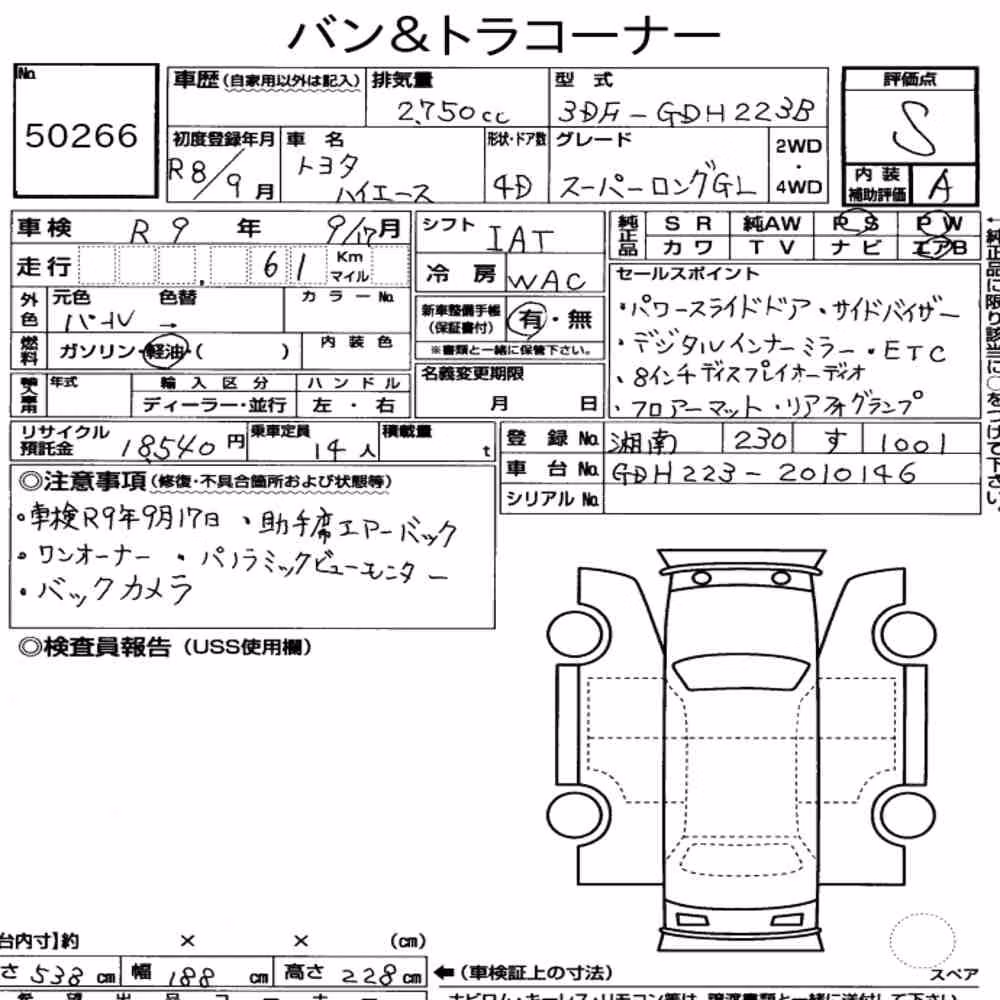 バン&トラコーナー
No. 50266
車歴(自家用以外は記入) 排気量 2,750cc 型式 3DF-GDH223B 評価点 S
初度登録年月 R8/9月 車名 トヨタ ハイエース 形状・ドア数 4D グレード スーパーロングGL 2WD・4WD 内装補助評価 A
車検 R9年 9/17月 シフト IAT 純正品 SR 純AW PS PW
走行 61 Km マイル 冷房 WAC カワ TV ナビ エアB
←純正品に限り該当に○をつけて下さい。
外色 元色 パール 色替 → カラーNo. 新車整備手帳(保証書付) 有・無
※書類と一緒に保管下さい。
燃料 ガソリン・軽油・( ) 内装色
輸入車用 年式 輸入区分 ハンドル 名義変更期限
ディーラー・並行 左・右 月 日
セールスポイント
・パワースライドドア・サイドバイザー
・デジタルインナーミラー・ETC
・8インチディスプレイオーディオ
・フロアーマット・リアフォグランプ
リサイクル預託金 18,540円 乗車定員 14人 積載量 t
登録No. 湘南 230 す 1001
車台No. GDH223-2010146
シリアルNo.
◎注意事項(修復・不具合箇所および状態等)
・車検R9年9月17日 ・助手席エアーバック
・ワンオーナー ・パノラミックビューモニター
・バックカメラ
◎検査員報告(USS使用欄)
台内寸】約 × × (cm)
さ 538cm 幅 188cm 高さ 228cm ←(車検証上の寸法)
スペア
希望出品コーナー
ナビロム・キーレス・リモコン等は、譲渡書類と一緒に送付して下さい